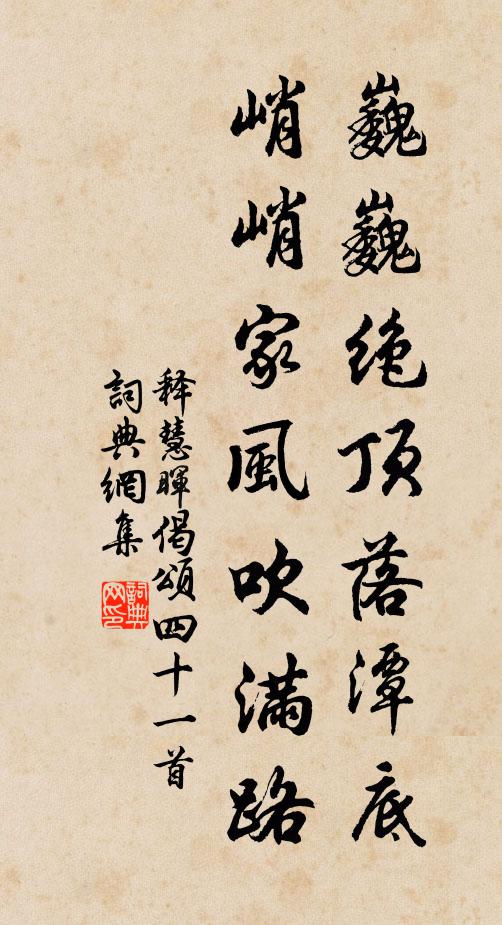 巍巍绝顶落潭底
峭峭家風吹满路
释慧暉偈頌四十一首
詞典網集
詞典網印